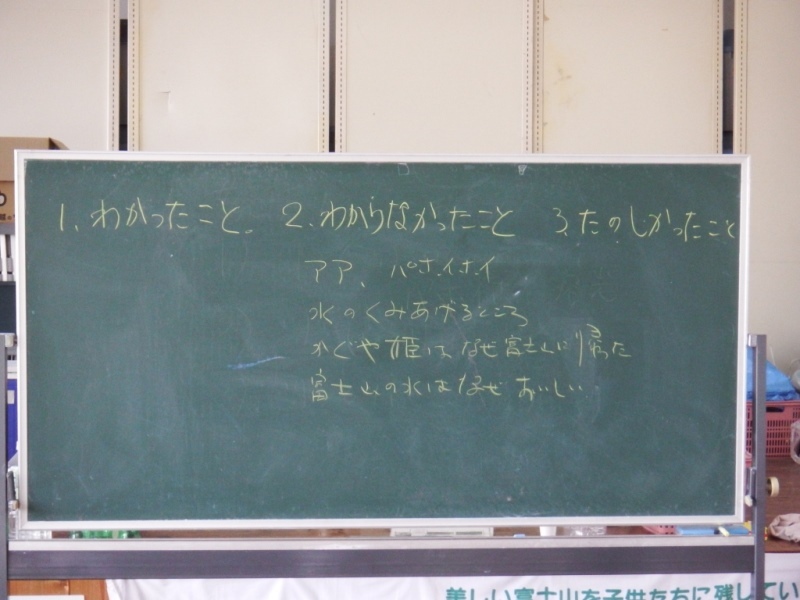 1、わかったこと、 2、わからなかったこと 3、たのしかったこと
アア、パホイホイ
水のくみあげるところ
かぐや姫は、なぜ富士山に帰った
富士山の水はなぜおいしい
美しい富士山を子供たちに残してい